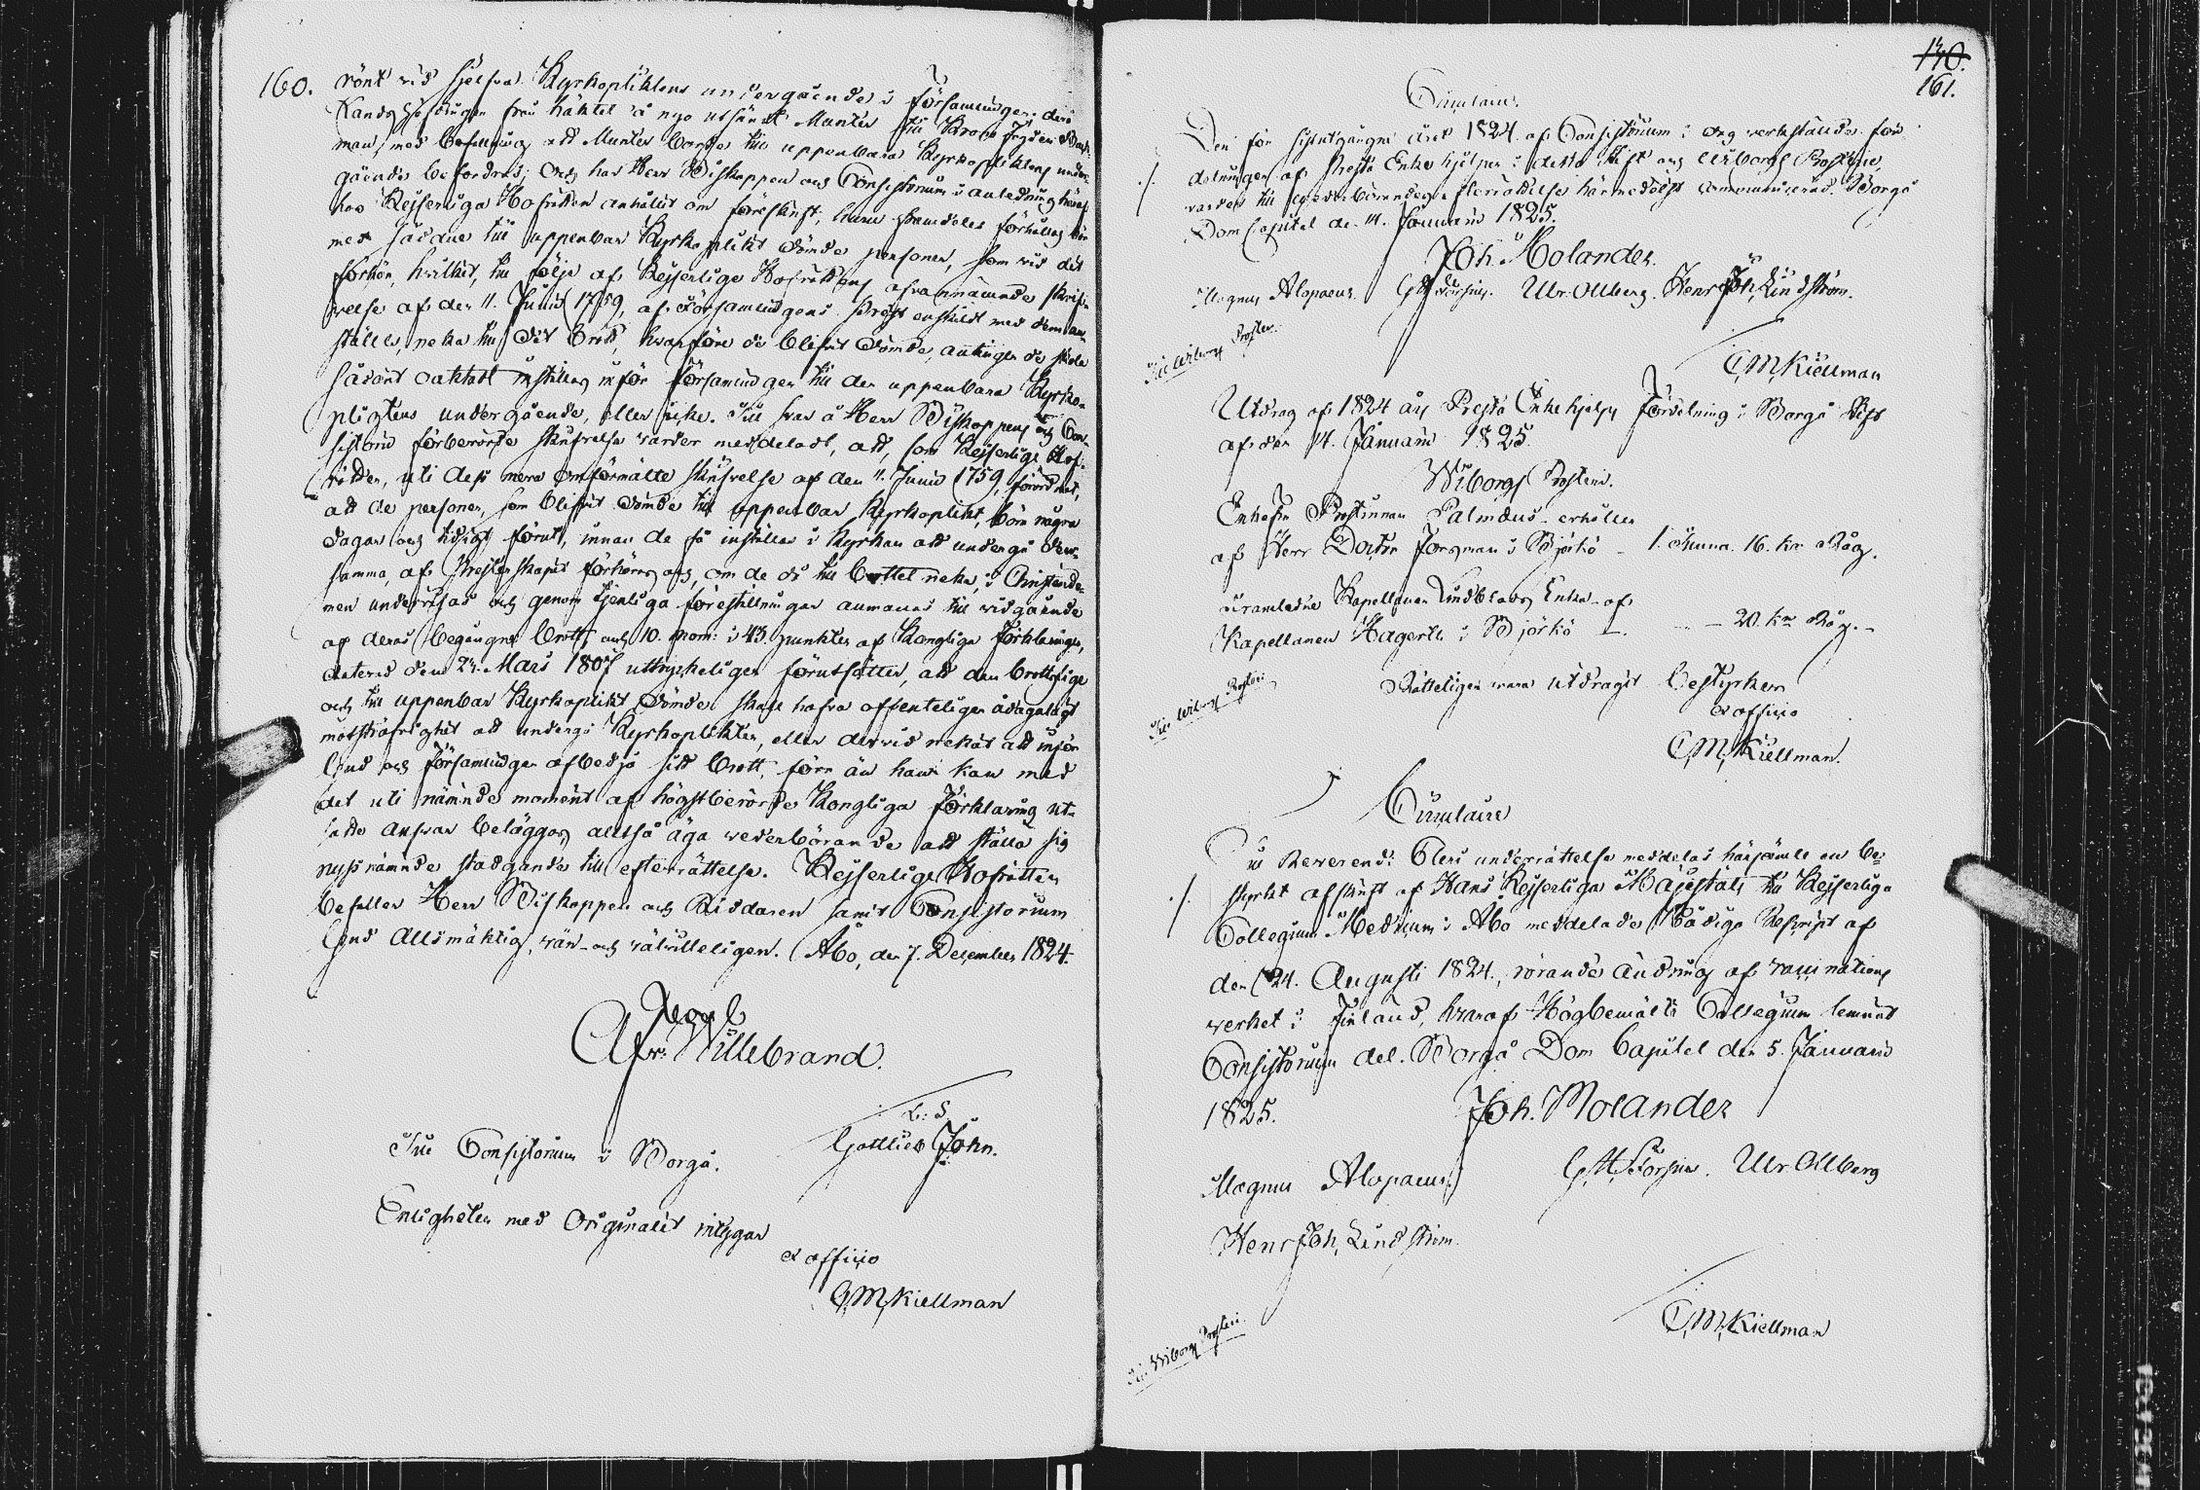 160.
rönt vid sjelfva Kyrkopliktens undergående i Församlingen; derå
Landshöfdingen från häktet å nyo utsändt Munter till Krono Fogden
man, med befallning att Munter borde till uppenbara Kyrkopliktens under-
gående befordras; Och har Herr Biskoppen och Consistorium i anledning häraf
hos Kejserliga Hofrätten anhållit om föreskrift, huru framdeles förhållas bör
med sådane till uppenbar Kyrkoplikt dömde personer, som vid det
förhör, hvilket, till följe af Kejserliga Hofrättens ofvannämnde skrif-
velse af den 11. Junii 1759, af Församlingens Prest enskildt med dem an-
ställes, neka till det brott, hvarföre de blifvit dömde, antingen de skola
sådant oaktadt inställas inför Församlingen till den uppenbara Kyrko-
pligtens undergående, eller icke. Till svar å Herr Biskoppens och Con-
sistorii förberörde skrifvelse varder meddeladt, att, som Kejserliga Hof-
rätten, uti dess mera omförmälte skrifvelse af den 11. Junii 1759, förordnat,
att de personer, som blifvit dömde till uppenbar Kyrkoplikt, böra några
dagar och tidigt förut, innan de få inställas i Kyrkan att undergå den-
samma, af Presterskapet förhöras och, om de då till brottet neka, i Christendo-
men undervisas och genom tjenliga föreställningar anmanas till vidgående
af deras begångna brott, och 10. mom: i 43 punkten af Kongliga Förklaringen,
daterad den 23. Mars 1807 uttryckeligen förutsätter, att den brottslige
och till uppenbar Kyrkoplikt dömde skall hafva offenteligen ådagalagt
motsträfvighet att undergå Kyrkoplikten, eller dervid nekat att inför
Gud och församlingen afbedja sitt brott, förr än han kan med
det uti nämnde moment af högstberörde Kongliga Förklaring ut-
satte ansvar beläggas, alltså äga vederbörande att ställa sig
nyssnämnde stadgande till efterrättelse. Kejserliga Hofrätten
befaller Herr Biskoppen och Riddaren samt Consistorium
Gud Allsmäktig, vän- och välvilleligen. Åbo, den 7. December 1824.
Willebrand.
L: S.
Till Consistorium i Borgå.
Gottlieb John.
Enligheten med Originalet intygar
ex officio
C, M, Kiellman
140.
161.
Circulaire.
Den för sistutgångne året 1824 af Consistorium i dag verkställde för-
delningen af Prest Enkehjelpen i detta Stift och Wiborgs Prosteri,
varder till vederbörandes efterrättelse härmedelst communicerad. Borgå
Dom Capitel den 14. Januarii 1825.
Joh. Molander.
Magnus Alopaeus. Ulr. Ollberg. Henr Joh, Lindström.
Till Wiborgs Prosteri.
C, M, Kiellman
Utdrag af 1824 års Prest Enkehjelps Fördelning i Borgå Stift
af den 14. Januarii 1825.
Wiborgs Prosteri.
Enkefru Prostinnan Palmdus erhåller
af Herr Doctor Forsman i Björkö – 1. Tunna. 16. kr Råg.
Framledne Kapellanen Lindblads Enka af
Kapellanen Hagerth i Björkö – – 20. kr Råg. –
Till Wiborgs Prosteri
Rätteligen vara utdragit bestyrker
ex officio
C, M, Kiellman.
Circulaire
Till Reverendi Cleri underrättelse meddelas härjämte en be-
styrkt afskrift af Hans Kejserliga Majestäts till Kejserliga
Collegium Medicum i Åbo meddelade Nådiga Rescript af
den 24. Augusti 1824, rörande ändring af vaccinations
verket i Finland, hvaraf Högbemälte Collegium lemnat
Consistorium del. Borgå Dom Capitel den 5. Januarii
1825.
Joh. Molander
Magnus Alopaeus. Ulr. Ollberg
Henr Joh, Lindström.
Till Wiborgs Prosteri.
C, M, Kiellman